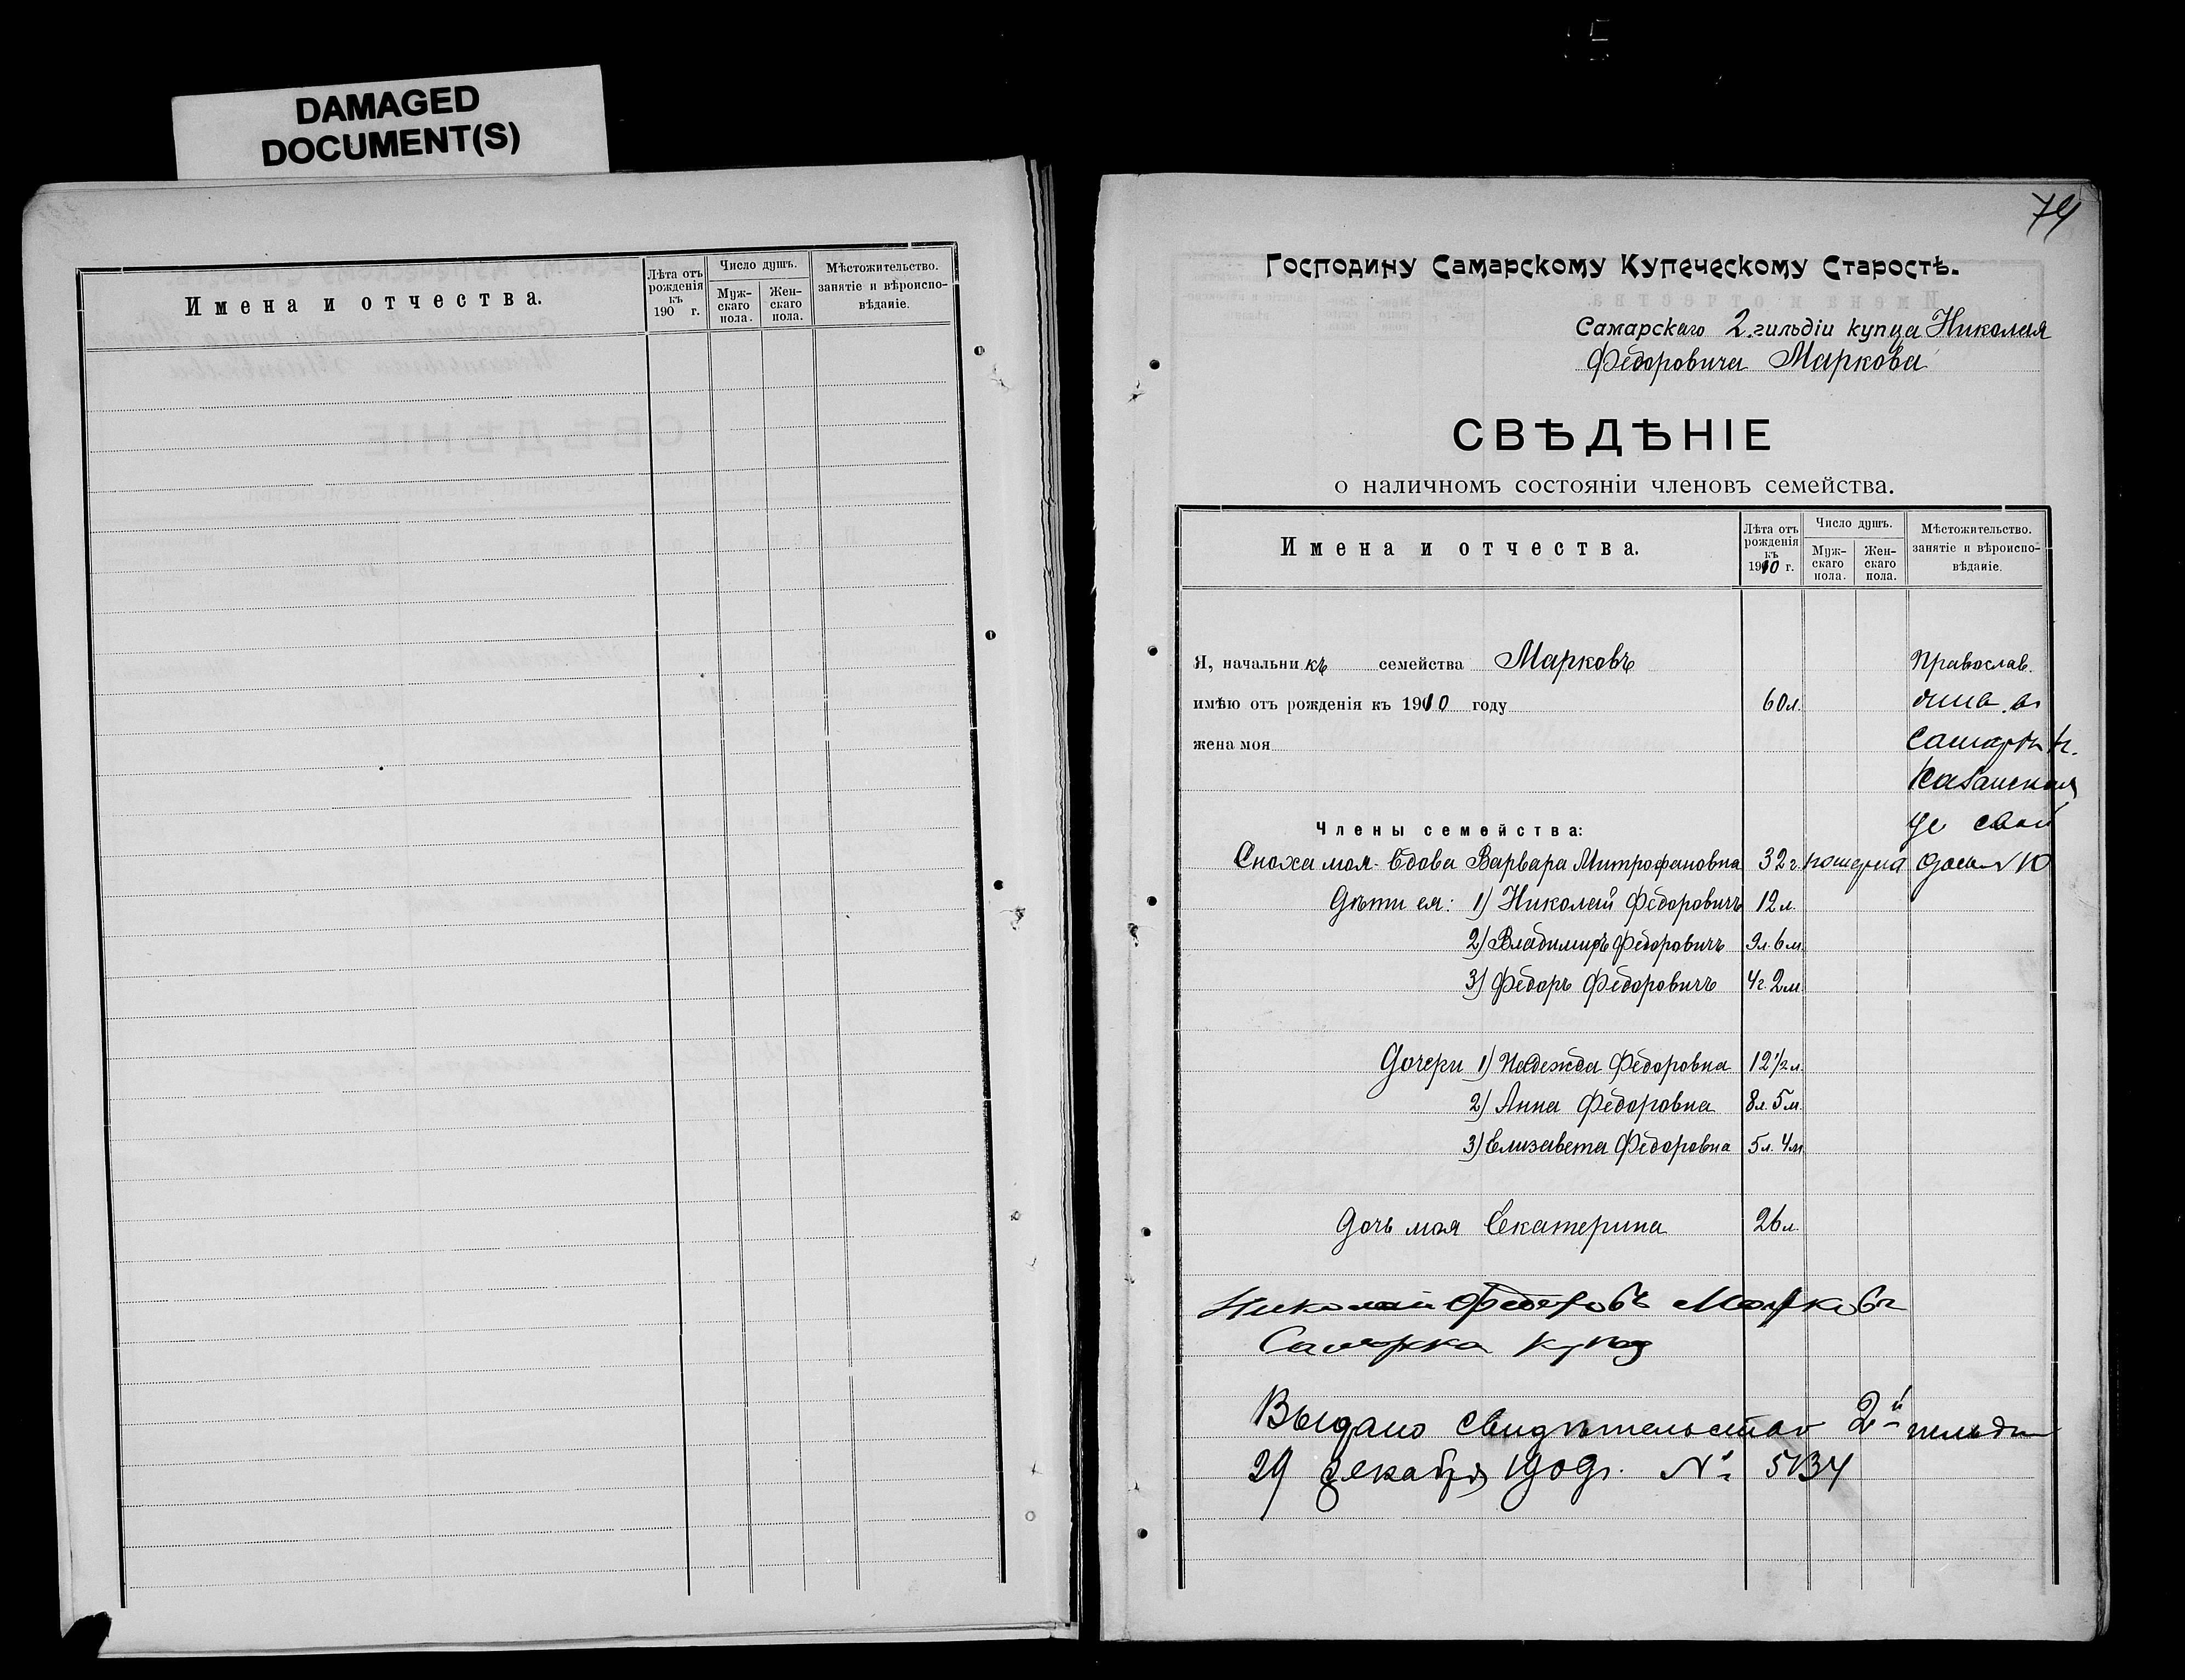 DAMAGED
DOCUMENT(S)
Имена и отчества.
Лѣта отъ рожденія къ 190 г.
Число душъ.
Мужскаго пола.
Женскаго пола.
Мѣстожительство. занятіе и вѣроисповѣданіе.
79
Господину Самарскому Купеческому Старостѣ.
Самарскаго 2.гильдіи купца Николая
Федоровича Маркова
СВѢДѢНІЕ
о наличномъ состояніи членовъ семейства.
Имена и отчества.
Лѣта отъ рожденія къ 1910 г.
Число душъ.
Мужскаго пола.
Женскаго пола.
Мѣстожительство. занятіе и вѣроисповѣданіе.
Я, начальникъ семейства Марковъ Православ.
имѣю отъ рожденія къ 1910 году 60 л. въ
жена моя Самарѣ
Казанская
Члены семейства: свой
Сноха моя - вдова Варвара Митрофановна 32 г. домъ № 10
Дѣти ея: 1) Николай Федоровичъ 12 л.
2) Владимиръ Федоровичъ 9 л. 6 м.
3) Федоръ Федоровичъ 4 г. 2 м.
Дочери 1) Надежда Федоровна 12 1/2 л.
2) Анна Федоровна 8 л. 5 м.
3) Елизавета Федоровна 5 л. 4 м.
Дочь моя Екатерина 26 л.
Николай Федоровъ Марковъ
Выдано свидѣтельство 2й гильдіи
29 декабря 1909 г. № 5134